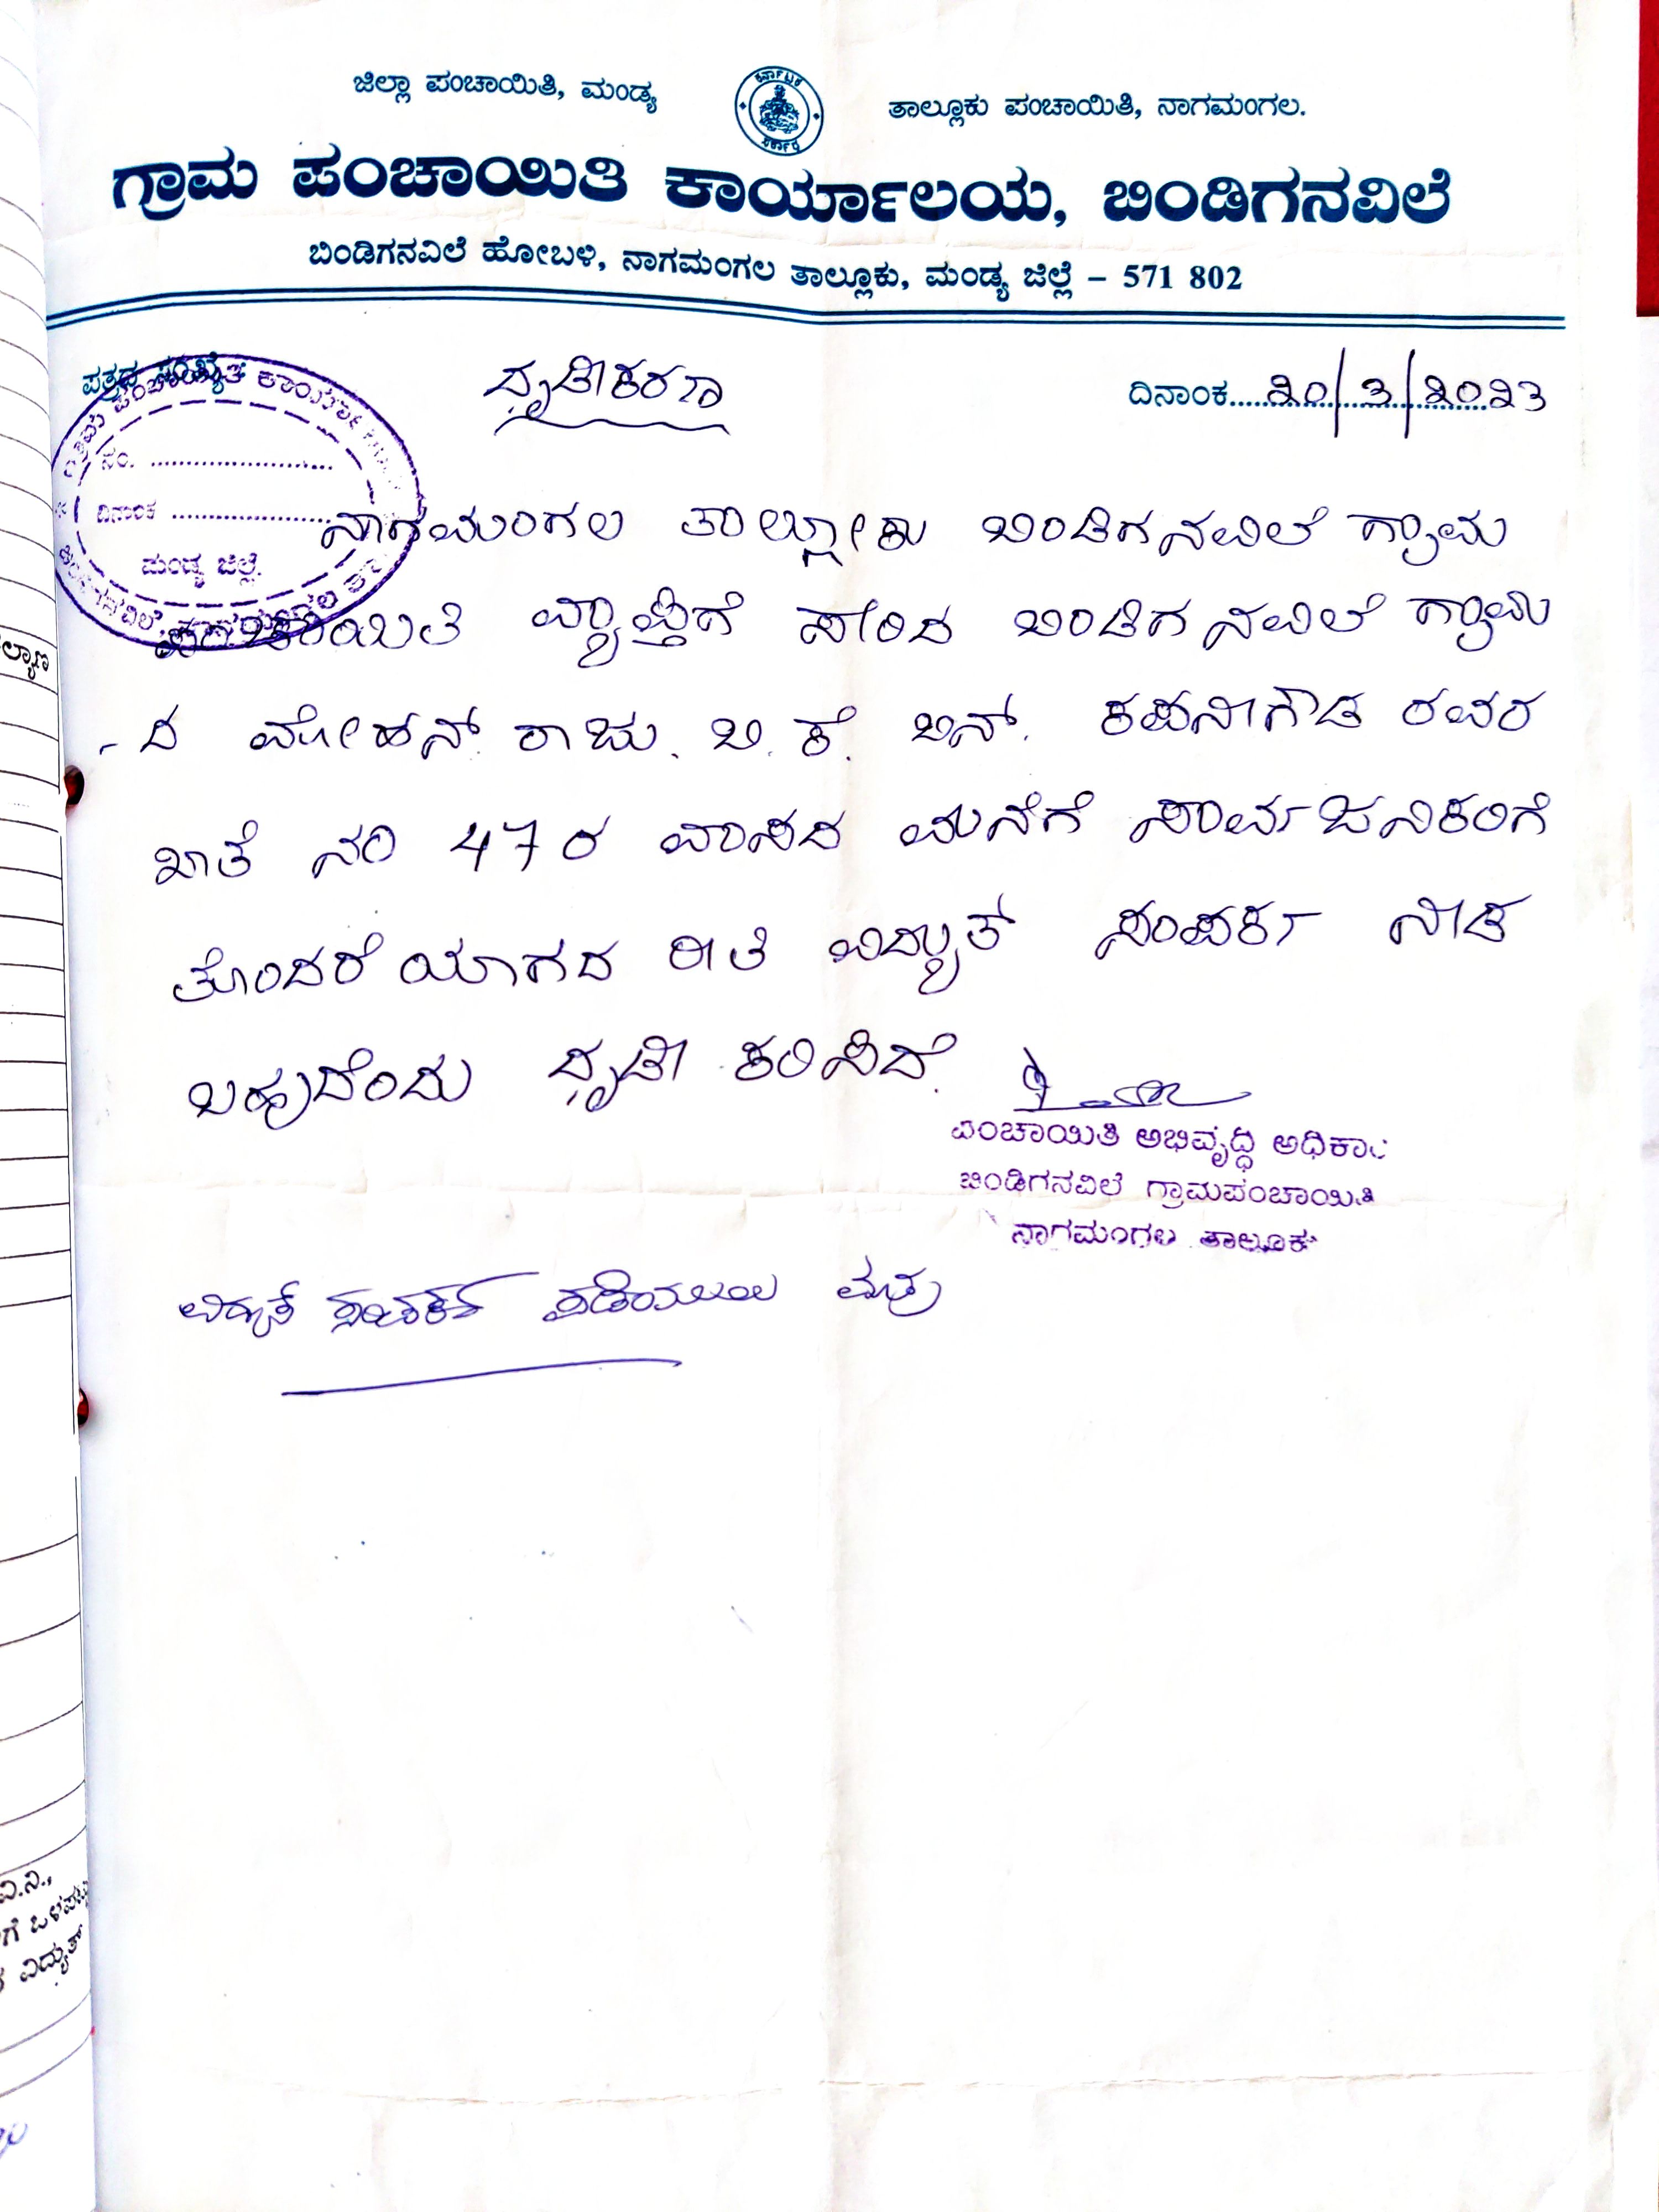 ಜಿಲ್ಲಾ ಪಂಚಾಯಿತಿ, ಮಂಡ್ಯ
ಕರ್ನಾಟಕ ಸರ್ಕಾರ
ತಾಲ್ಲೂಕು ಪಂಚಾಯಿತಿ, ನಾಗಮಂಗಲ.
ಗ್ರಾಮ ಪಂಚಾಯಿತಿ ಕಾರ್ಯಾಲಯ, ಬಿಂಡಿಗನವಿಲೆ
ಬಿಂಡಿಗನವಿಲೆ ಹೋಬಳಿ, ನಾಗಮಂಗಲ ತಾಲ್ಲೂಕು, ಮಂಡ್ಯ ಜಿಲ್ಲೆ – 571 802
ಪತ್ರದ ಸಂಖ್ಯೆ
ದೃಢೀಕರಣ
ದಿನಾಂಕ.....20/3/2023
ನಂ. ........................
ದಿನಾಂಕ ....................
ಮಂಡ್ಯ ಜಿಲ್ಲೆ.
ನಾಗಮಂಗಲ ತಾಲ್ಲೂಕು ಬಿಂಡಿಗನವಿಲೆ ಗ್ರಾಮ
ಪಂಚಾಯಿತಿ ವ್ಯಾಪ್ತಿಗೆ ಸೇರಿದ ಬಿಂಡಿಗನವಿಲೆ ಗ್ರಾಮ
- ದ ಮೋಹನ್ ರಾಜು. ಬಿ. ಕೆ. ಬಿನ್. ಕಪನೀಗೌಡ ರವರ
ಖಾತೆ ನಂ 47 ರ ವಾಸದ ಮನೆಗೆ ಸಾರ್ವಜನಿಕರಿಗೆ
ತೊಂದರೆಯಾಗದ ರೀತಿ ವಿದ್ಯುತ್ ಸಂಪರ್ಕ ನೀಡ
ಬಹುದೆಂದು ದೃಢೀಕರಿಸಿದೆ.
ಪಂಚಾಯಿತಿ ಅಭಿವೃದ್ಧಿ ಅಧಿಕಾರಿ
ಬಿಂಡಿಗನವಿಲೆ ಗ್ರಾಮಪಂಚಾಯಿತಿ
ನಾಗಮಂಗಲ ತಾಲ್ಲೂಕು
ವಿದ್ಯುತ್ ಸಂಪರ್ಕ ಪಡೆಯಲು ಮಾತ್ರ
ಲ್ಯಾಣ
ವಿ.ನಿ.,
ಗೆ ಒಳಪಟ್ಟು
ವಿದ್ಯುತ್